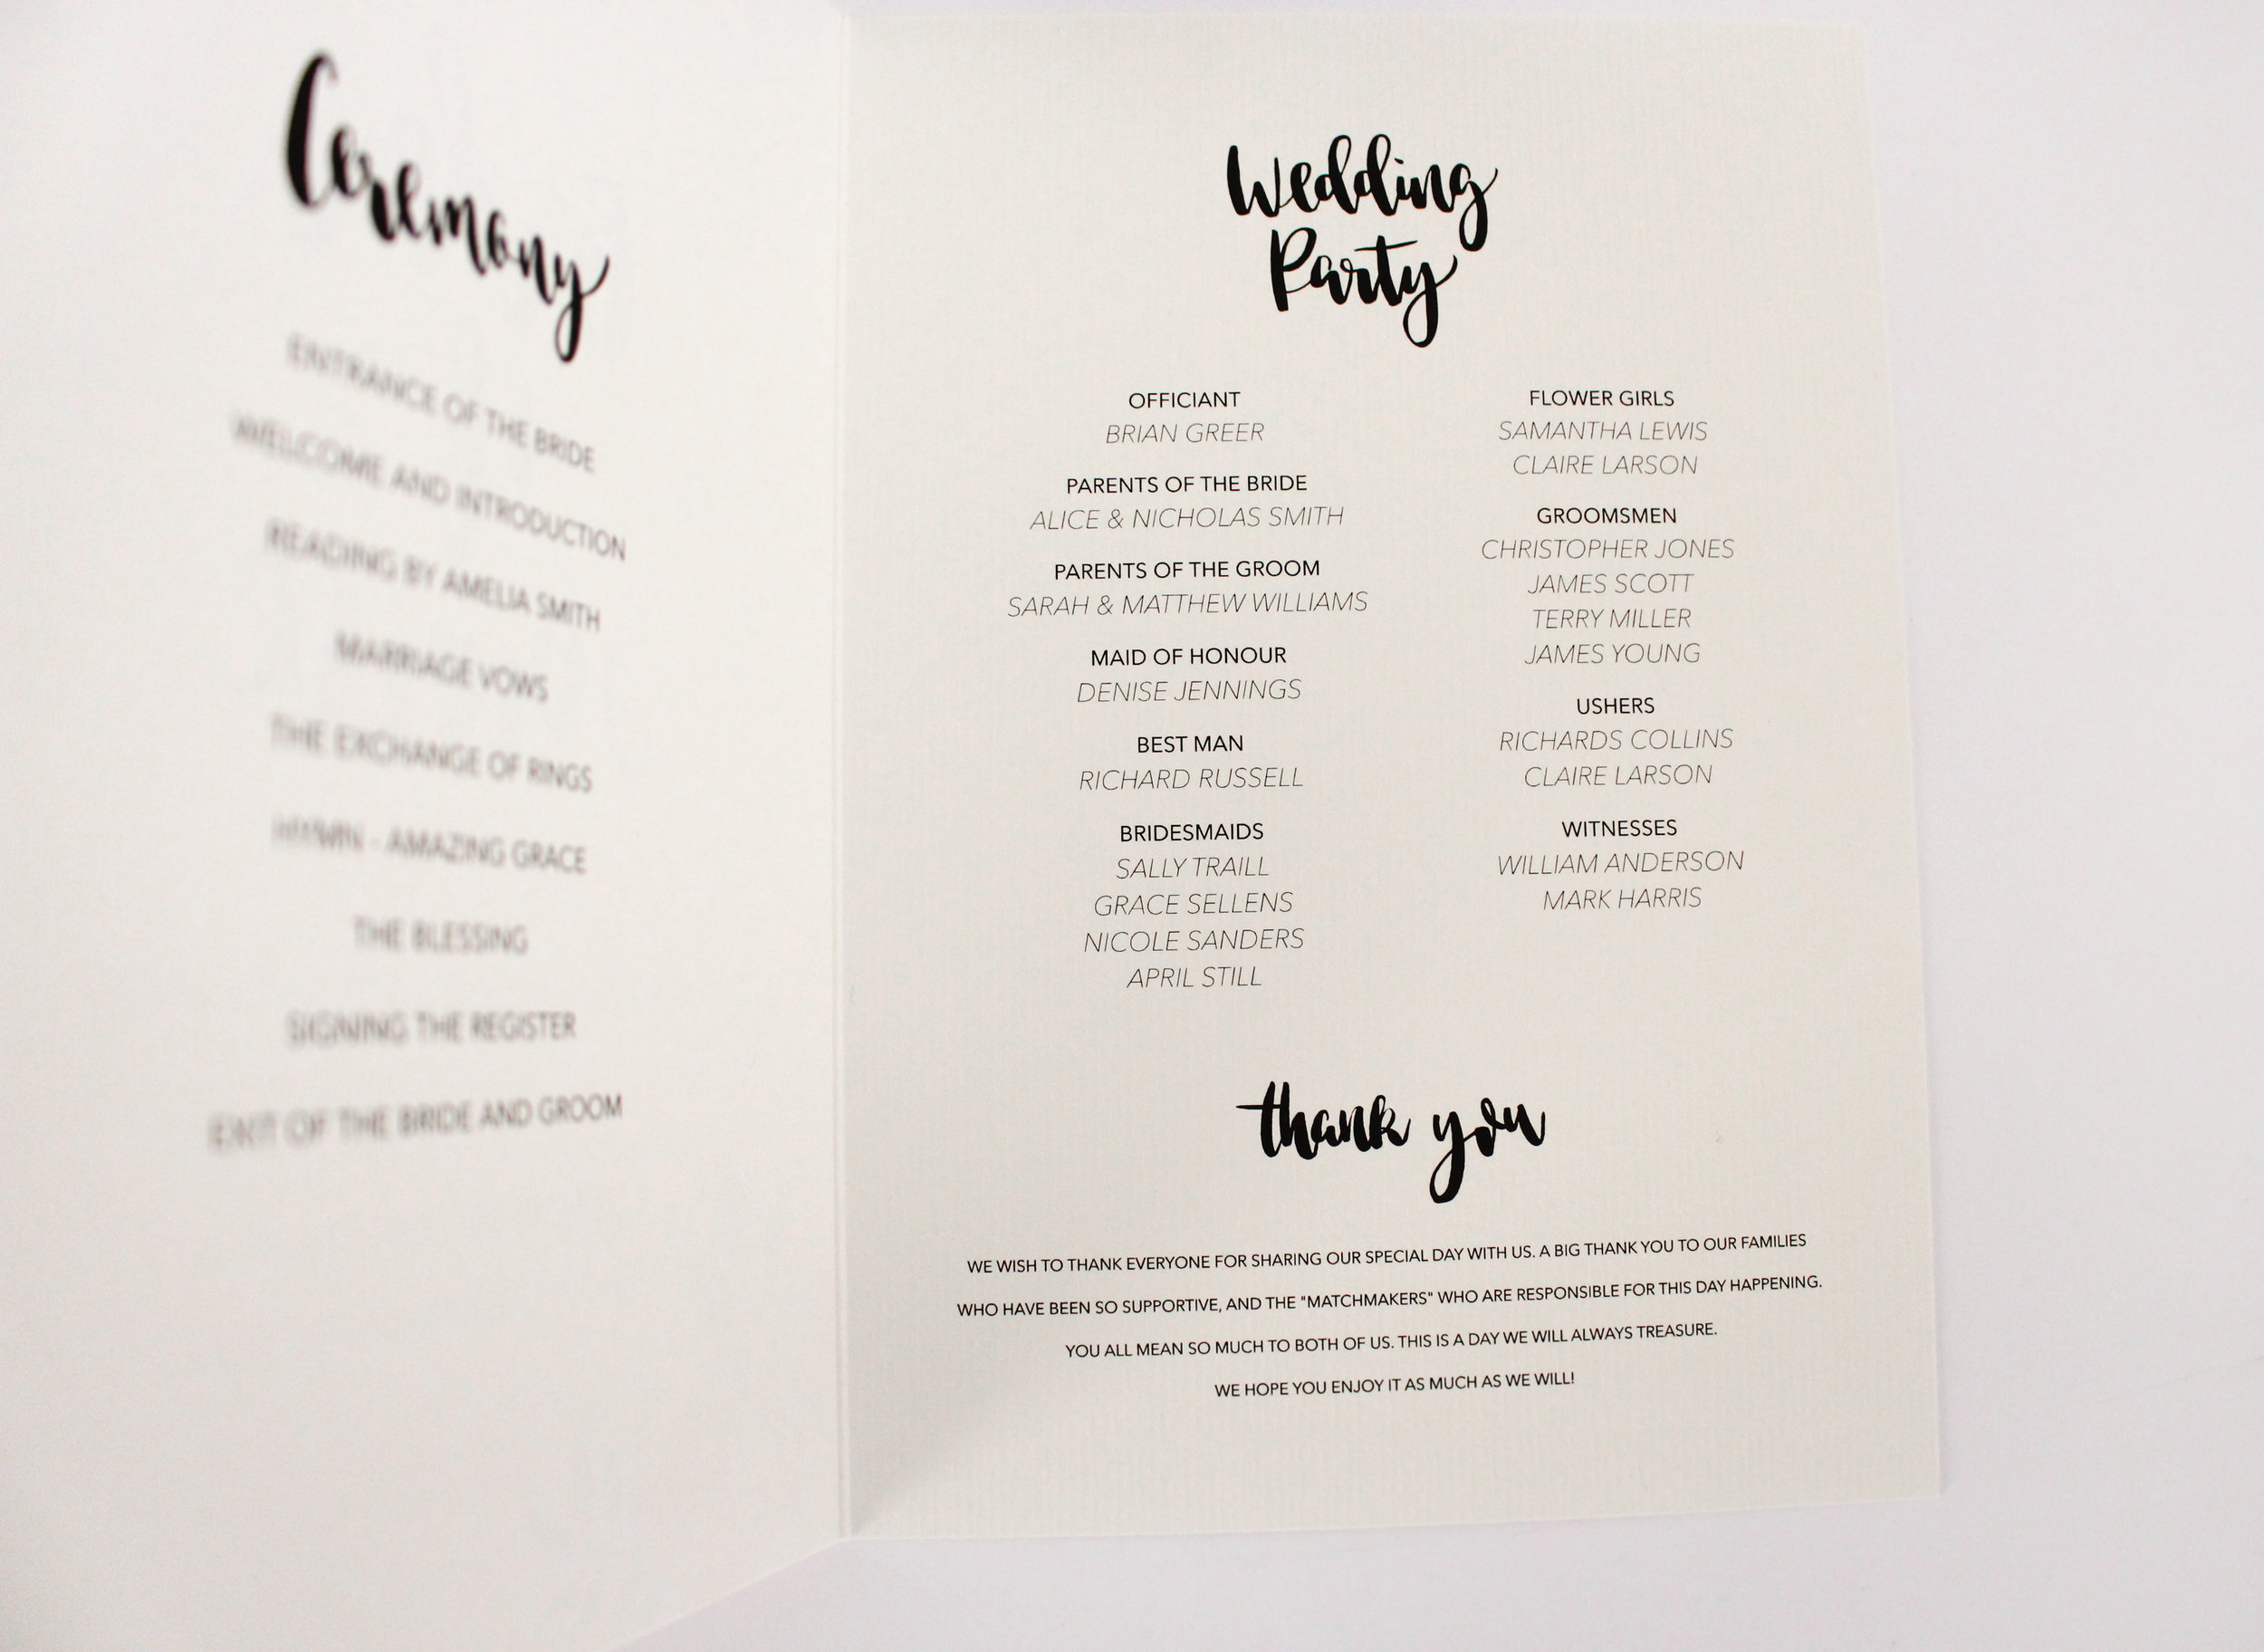 Ceremony
ENTRANCE OF THE BRIDE
WELCOME AND INTRODUCTION
READING BY AMELIA SMITH
MARRIAGE VOWS
THE EXCHANGE OF RINGS
HYMN - AMAZING GRACE
THE BLESSING
SIGNING THE REGISTER
EXIT OF THE BRIDE AND GROOM
Wedding
Party
OFFICIANT
BRIAN GREER
PARENTS OF THE BRIDE
ALICE & NICHOLAS SMITH
PARENTS OF THE GROOM
SARAH & MATTHEW WILLIAMS
MAID OF HONOUR
DENISE JENNINGS
BEST MAN
RICHARD RUSSELL
BRIDESMAIDS
SALLY TRAILL
GRACE SELLENS
NICOLE SANDERS
APRIL STILL
FLOWER GIRLS
SAMANTHA LEWIS
CLAIRE LARSON
GROOMSMEN
CHRISTOPHER JONES
JAMES SCOTT
TERRY MILLER
JAMES YOUNG
USHERS
RICHARDS COLLINS
CLAIRE LARSON
WITNESSES
WILLIAM ANDERSON
MARK HARRIS
thank you
WE WISH TO THANK EVERYONE FOR SHARING OUR SPECIAL DAY WITH US. A BIG THANK YOU TO OUR FAMILIES
WHO HAVE BEEN SO SUPPORTIVE, AND THE "MATCHMAKERS" WHO ARE RESPONSIBLE FOR THIS DAY HAPPENING.
YOU ALL MEAN SO MUCH TO BOTH OF US. THIS IS A DAY WE WILL ALWAYS TREASURE.
WE HOPE YOU ENJOY IT AS MUCH AS WE WILL!